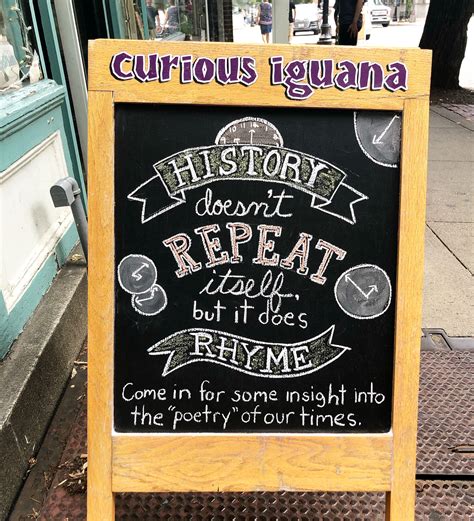 curious iguana
HISTORY
doesn't
REPEAT
itself,
but it does
RHYME
Come in for some insight into
the "poetry" of our times.